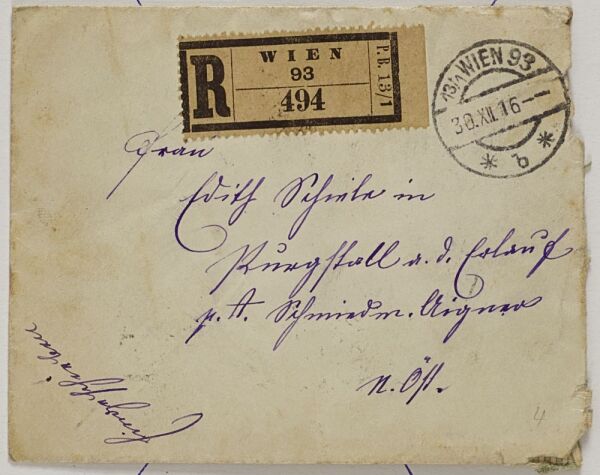 R
WIEN
93
494
P.B. 13/1
13/1 WIEN 93
30.XII.16
* b *
Frau
Edith Schiele in
Purgstall a. d. Erlauf
p. A. Schmiedm. Aigner
N. Öst.
Eingeschrieben
4